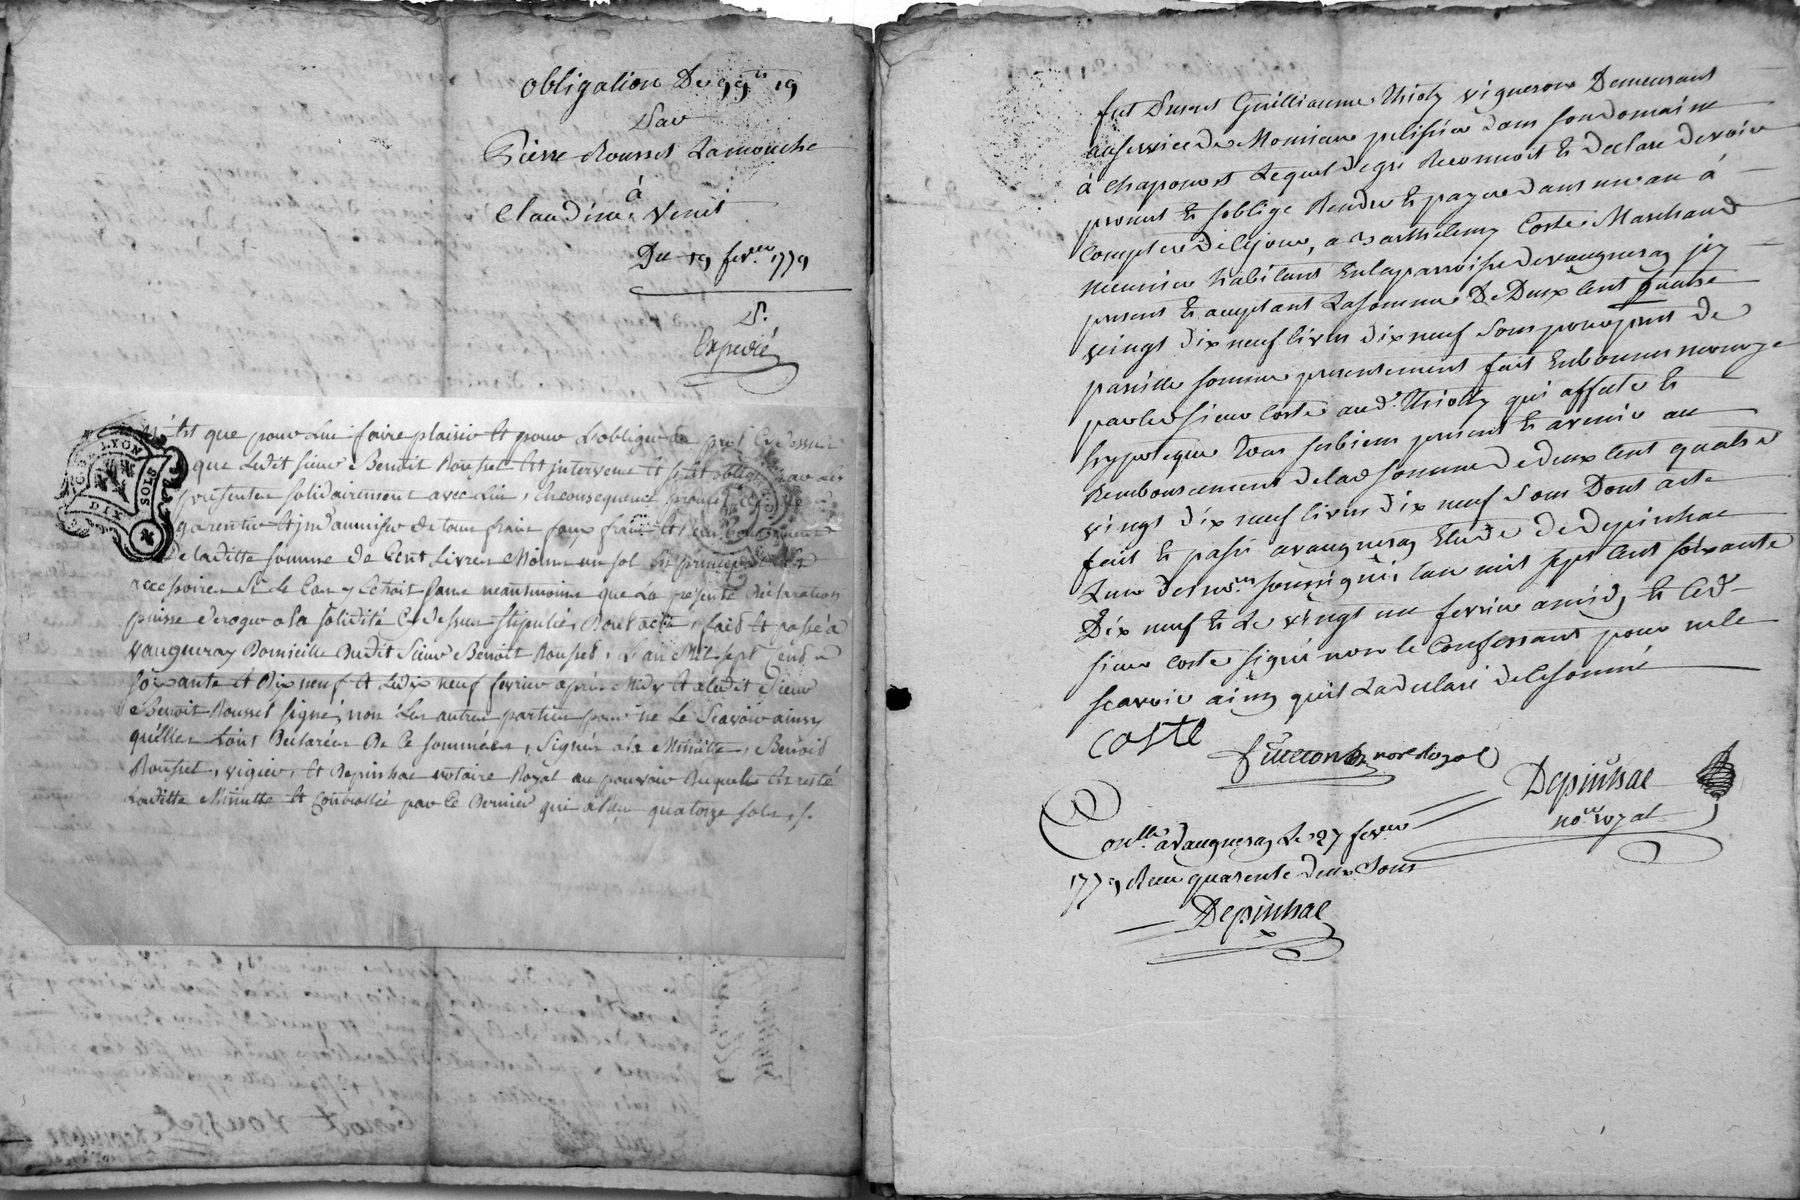 obligation De 99# 19
Par
Pierre Rousset Lamouche
à
Claudine Venit
Du 19 fever 1779
Expedié
CS. LYON
DIX SOLS
Est que pour lui faire plaisir Et pour L'obliger
que Ledit sieur Benoit Rousset Est intervenu Et s'est obligé par les
presentes solidairement avec lui, En consequence promet
garentir Et jndamniser de tous frais faux frais Et
De laditte somme de Cent Livres Moins un sol En principal Et
accessoires Si le Cas y Echoit sans neantmoins que La presente Declaration
puisse deroger a la solidité Cy dessus stipulée, Dont acte, faid Et passé à
vaugneray Domicille Dudit Sieur Benoit Rousset, L'an Mil sept Cend
soixante et Dix neuf Et Ledix neuf fevrier après Midy Et a ledit Sieur
Benoit Rousset signé, non Les autres parties pour ne Le Scavoir ainsy
qu'elles L'ont Declarées De Ce sommées, Signés a la Minutte, Benoid
Rousset, vigier, Et Depinhac notaire Royal au pouvoir Duquel Est resté
Laditte Minutte Et Controllée par Ce Dernier qui a reçu quatorze sols
Benoit Rousset
fut present Guilliaume Thioly vigneron Demeurant
au service de Monsieur pelissier dans son domaine
à chaponost Lequel de gré Reconnoit Et declare devoir
promet Et s'oblige Rendre Et payer dans un an à
Compter de Cejour, a Barthelemy Coste Marchand
meunier habitant En la parroisse de vaugneray jcy
present Et acceptant La somme De Deux Cent quatre
vingt dix neuf livres dix neuf sous pour prest de
pareille somme presentement fait En bonne monnoye
par led sieur Coste aud. Thioly qui affecte Et
hypoteque tous ses biens present Et avenir au
Remboursement de lad somme de deux Cent quatre
vingt dix neuf livres dix neuf sous Dont acte
fait Et passé a vaugneray Etude de Depinhac
L'un des nores soussignés, l'an mil sept Cent soixante
Dix neuf Et Le vingt un fevrier a midy Et Led
sieur Coste signé non le Confessant pour ne le
scavoir ainsy quil La declaré de Ce sommé
COSTE
nore Royal
Depinhac
nore royal
Conllé a vaugneray Le 27 fevrer
1779 Reçu quarente deux Sous
Depinhac